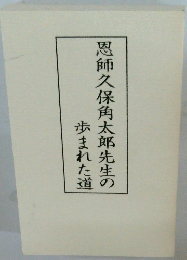 恩師久保角太郎先生の
歩まれた道